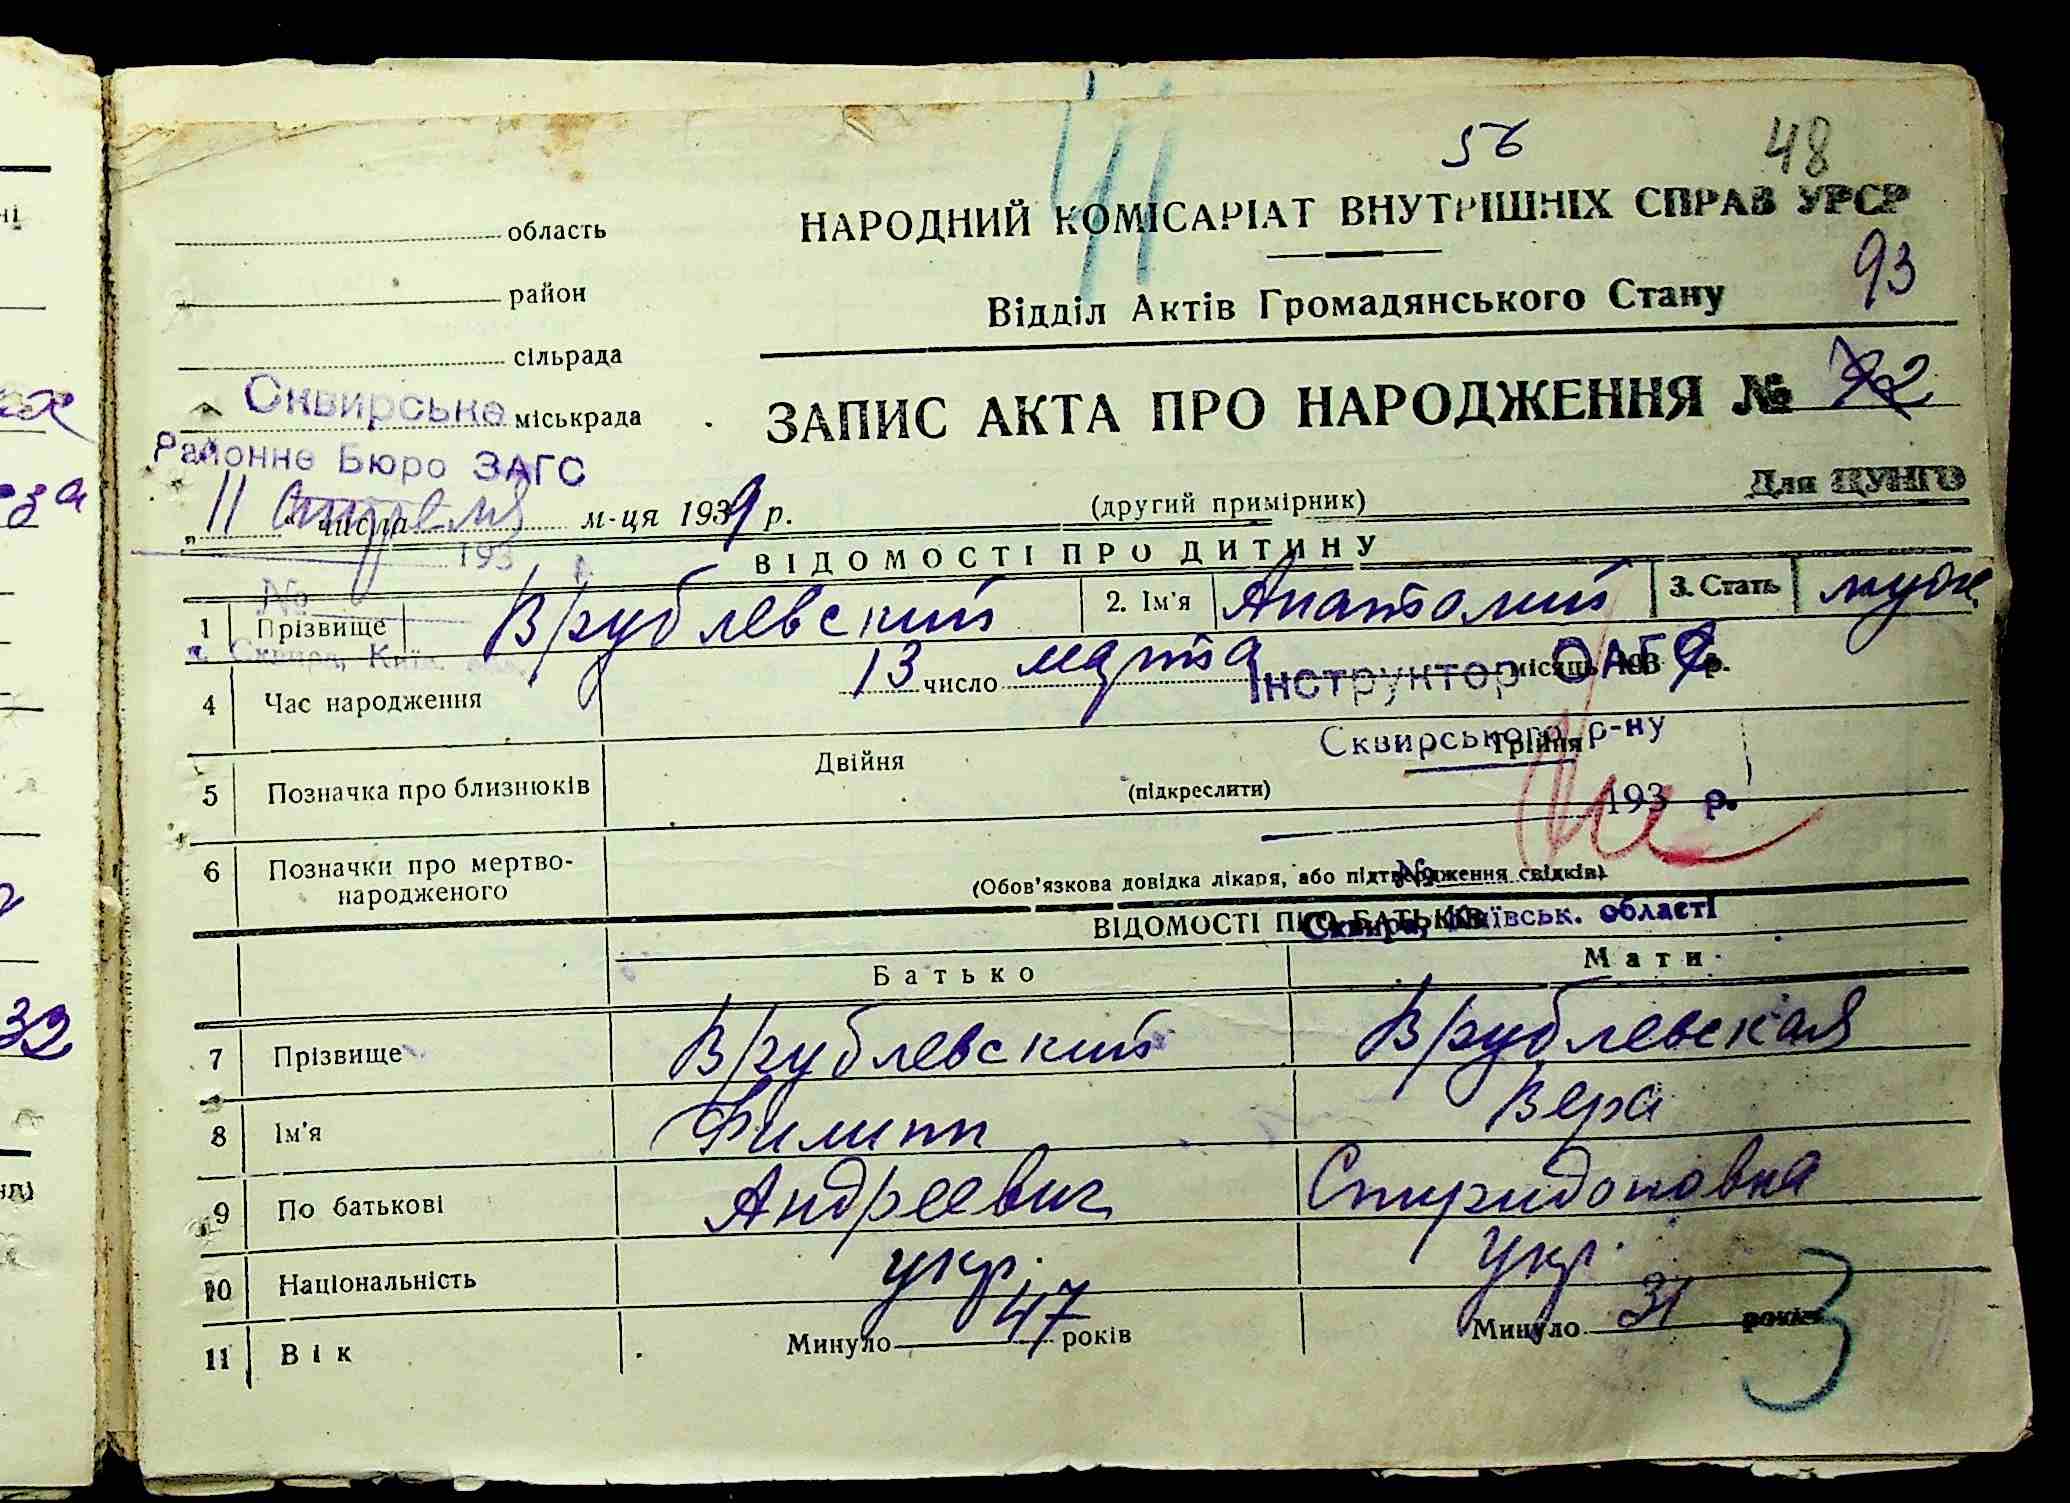 41
56
48
область
НАРОДНИЙ КОМІСАРІАТ ВНУТРІШНІХ СПРАВ УРСР
район
Відділ Актів Громадянського Стану
93
сільрада
Сквирське міськрада
ЗАПИС АКТА ПРО НАРОДЖЕННЯ №
Районне Бюро ЗАГС
Для ЦУНГО
„ 11 “ числа апреля м-ця 1939 р.
(другий примірник)
193
ВІДОМОСТІ ПРО ДИТИНУ
№
1 Прізвище Врублевский 2. Ім'я Анатолий 3. Стать муж.
м. Сквира, Київ.
4 Час народження 13 число марта місяць 1939 р.
Інструктор ОАГС
Сквирського р-ну
5 Позначка про близнюків Двійня Трійня
(підкреслити)
193 р.
6 Позначки про мертво-
народженого
№
(Обов'язкова довідка лікаря, або підтвердження свідків)
ВІДОМОСТІ ПРО БАТЬКІВ
Сквира, Київськ. області
Батько Мати
7 Прізвище Врублевский Врублевская
8 Ім'я Филипп Вера
9 По батькові Андреевич Спиридоновна
10 Національність укр. укр.
11 Вік Минуло 47 років Минуло 31 років
3
32